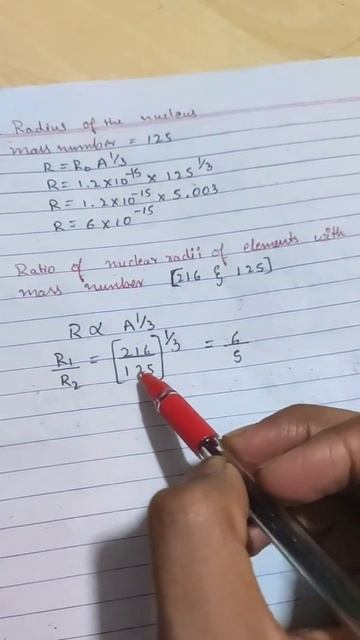 Radius of the nucleus
mass number = 125
R = R₀ A^1/3
R = 1.2 × 10^-15 × 125^1/3
R = 1.2 × 10^-15 × 5.003
R = 6 × 10^-15
Ratio of nuclear radii of elements with
mass number [216 & 125]
R ∝ A^1/3
R₁/R₂ = [216/125]^1/3 = 6/5